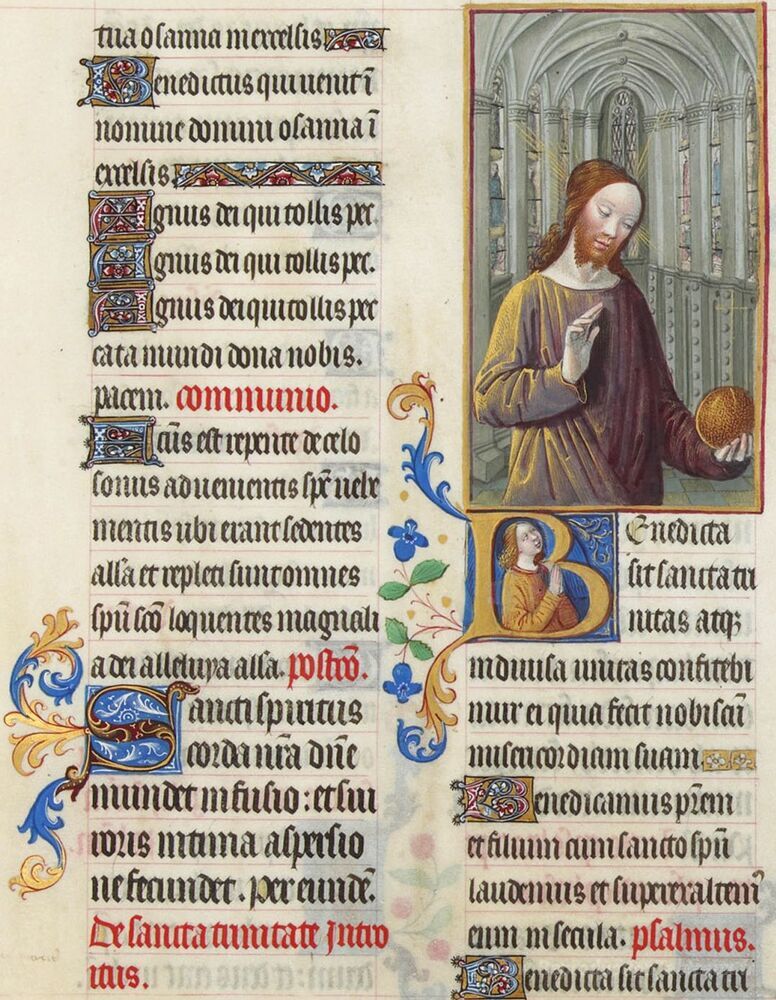 tua osanna in excelsis
Benedictus qui uenit ī
nomine domini osanna ī
excelsis.
Agnus dei qui tollis pec.
Agnus dei qui tollis pec.
Agnus dei qui tollis pec
cata mundi dona nobis.
pacem. communio.
Actus est repente de celo
sonus aduenientis spc̄ uehe
mentis ubi erant sedentes
all̄a et repleti sunt omnes
spū scō loquentes magnali
a dei alleluya all̄a. postcō.
Sancti spiritus
corda nr̄a dn̄e
mundet infusio: et sui
roris intima aspersio
ne fecundet. per eundē.
De sancta trinitate Intro
itus.
Benedicta
sit sancta tri
nitas atqȝ
indiuisa unitas confitebi
mur ei quia fecit nobiscū
misericordiam suam
Benedicamus pr̄em
et filium cum sancto spū
laudemus et superexaltem⁹
eum in secula. psalmus.
Benedicta sit sancta tri